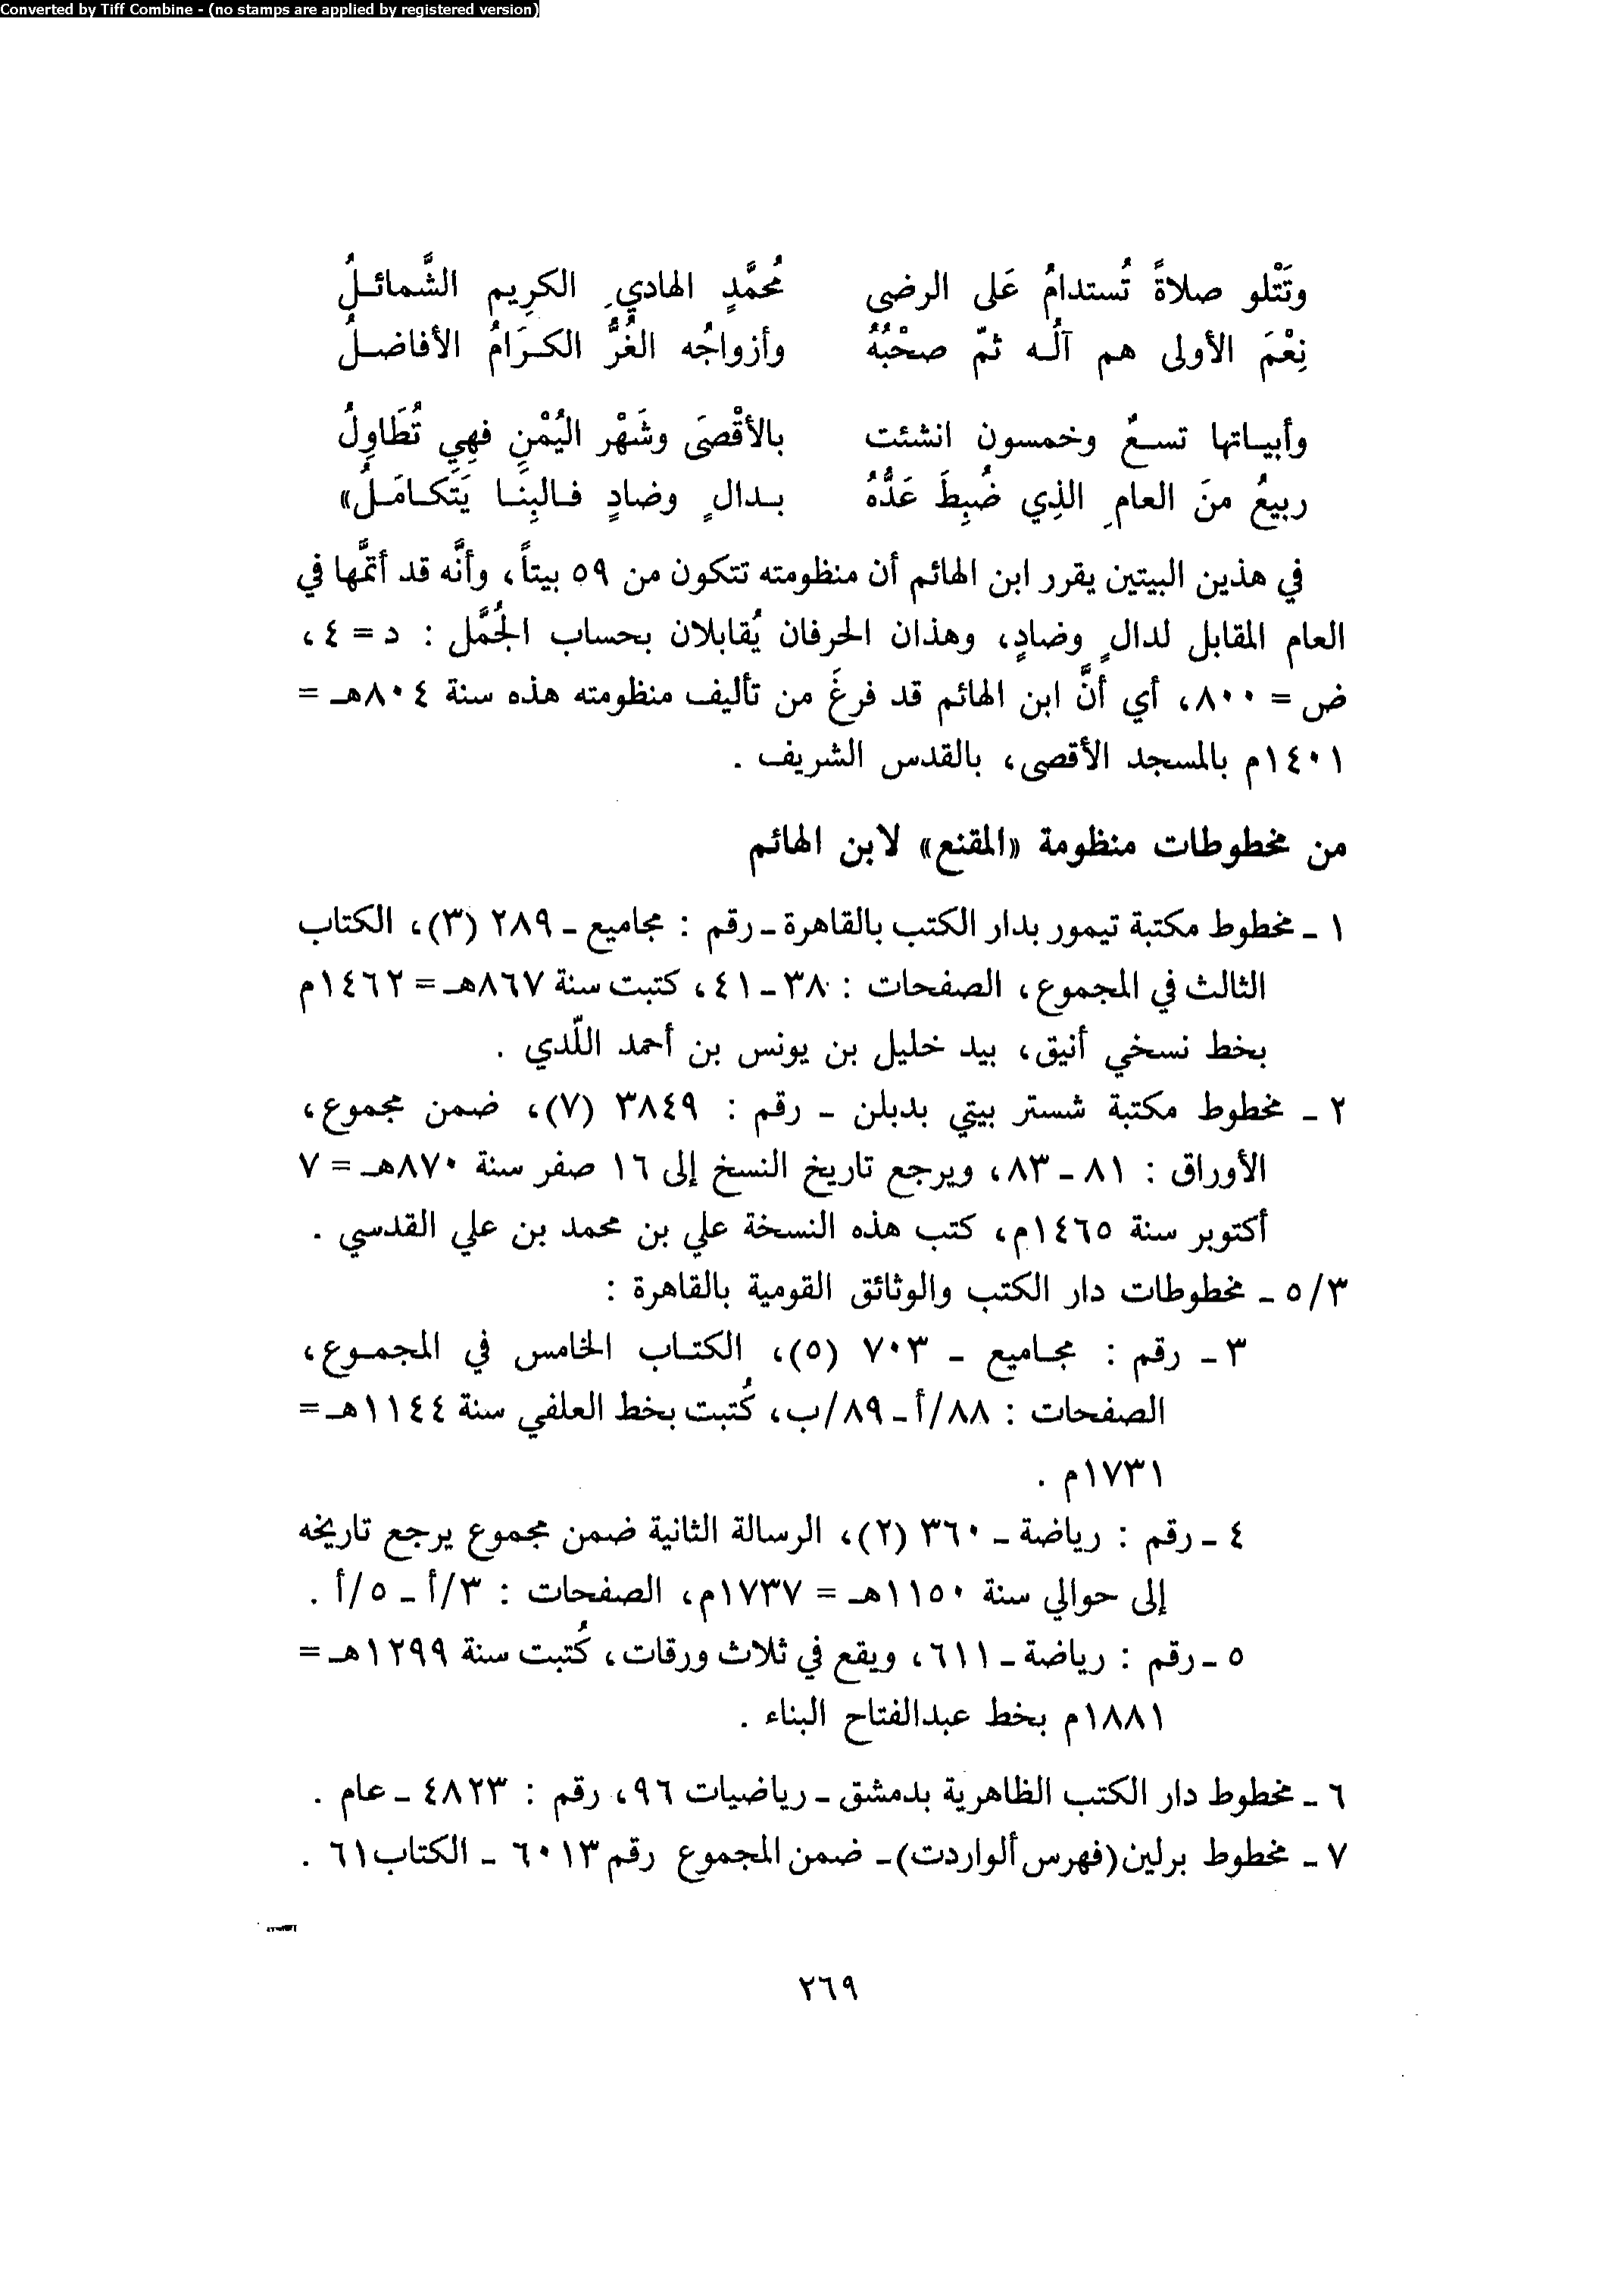 Converted by Tiff Combine - (no stamps are applied by registered version)
وتَتْلو صلاةً تُستدامُ عَلى الرضى مُحمَّدٍ الهاديِ الكرِيم الشَّمائـلُ
نِعْمَ الأولى هم آلُـه ثمّ صحْبُهُ وأزواجُه الغُرُّ الكـرَامُ الأفاضـلُ
وأبيـاتها تسـعٌ وخمسون انشئت بالأقْصَى وشَهْر اليُمْنِ فهِي تُطَاوِلُ
ربيعُ منَ العامِ الذِي ضُبِطَ عَدُّهُ بـدالٍ وضادٍ فـالبِنَـا يَتَكـامَـلُ»
في هذين البيتين يقرر ابن الهائم أن منظومته تتكون من ٥٩ بيتاً، وأنَّه قد أتمَّها في
العام المقابل لدالٍ وضادٍ، وهذان الحرفان يُقابلان بحساب الجُمَّل : د = ٤،
ض = ٨٠٠، أي أنَّ ابن الهائم قد فرغَ من تأليف منظومته هذه سنة ٨٠٤هـ =
١٤٠١م بالمسجد الأقصى، بالقدس الشريف .
من مخطوطات منظومة «المقنع» لابن الهائم
١ - مخطوط مكتبة تيمور بدار الكتب بالقاهرة - رقم : مجاميع - ٢٨٩ (٣)، الكتاب
الثالث في المجموع، الصفحات : ٣٨ - ٤١، كتبت سنة ٨٦٧هـ = ١٤٦٢م
بخط نسخي أنيق، بيد خليل بن يونس بن أحمد اللّدي .
٢ - مخطوط مكتبة شستر بيتي بدبلن - رقم : ٣٨٤٩ (٧)، ضمن مجموع،
الأوراق : ٨١ - ٨٣، ويرجع تاريخ النسخ إلى ١٦ صفر سنة ٨٧٠هـ = ٧
أكتوبر سنة ١٤٦٥م، كتب هذه النسخة علي بن محمد بن علي القدسي .
٥/٣ - مخطوطات دار الكتب والوثائق القومية بالقاهرة :
٣ - رقم : مجـاميع - ٧٠٣ (٥)، الكتـاب الخامس في المجمـوع،
الصفحات : ٨٨/أ - ٨٩/ب، كُتبت بخط العلفي سنة ١١٤٤هـ =
١٧٣١م .
٤ - رقم : رياضة - ٣٦٠ (٢)، الرسالة الثانية ضمن مجموع يرجع تاريخه
إلى حوالي سنة ١١٥٠هـ = ١٧٣٧م، الصفحات : ٣/أ - ٥/أ .
٥ - رقم : رياضة - ٦١١، ويقع في ثلاث ورقات، كُتبت سنة ١٢٩٩هـ =
١٨٨١م بخط عبدالفتاح البناء .
٦ - مخطوط دار الكتب الظاهرية بدمشق - رياضيات ٩٦، رقم : ٤٨٢٣ - عام .
٧ - مخطوط برلين (فهرس ألواردت) - ضمن المجموع رقم ٦٠١٣ - الكتاب ٦١ .
٢٦٩